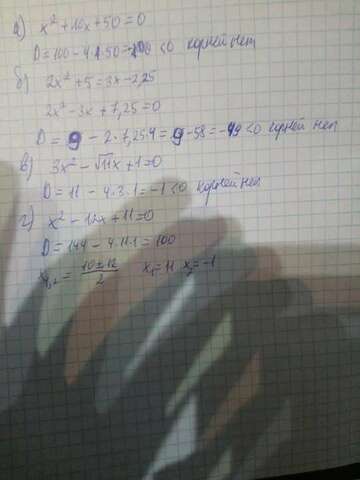 а) x² + 10x + 50 = 0
D = 100 - 4·1·50 = -100 < 0 корней нет
б) 2x² + 5 = 3x - 2,25
2x² - 3x + 7,25 = 0
D = 9 - 2·7,25·4 = 9 - 58 = -49 < 0 корней нет
в) 3x² - √11x + 1 = 0
D = 11 - 4·3·1 = -1 < 0 корней нет
г) x² - 12x + 11 = 0
D = 144 - 4·11·1 = 100
x₁,₂ = (10 ± 12)/2 x₁ = 11 x₂ = -1